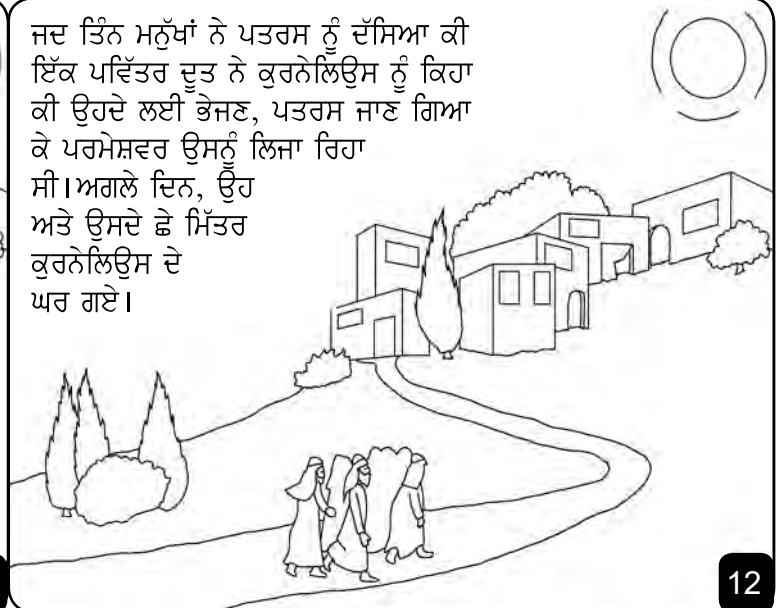 ਜਦ ਤਿੰਨ ਮਨੁੱਖਾਂ ਨੇ ਪਤਰਸ ਨੂੰ ਦੱਸਿਆ ਕੀ
ਇੱਕ ਪਵਿੱਤਰ ਦੂਤ ਨੇ ਕੁਰਨੇਲਿਉਸ ਨੂੰ ਕਿਹਾ
ਕੀ ਉਹਦੇ ਲਈ ਭੇਜਣ, ਪਤਰਸ ਜਾਣ ਗਿਆ
ਕੇ ਪਰਮੇਸ਼ਵਰ ਉਸਨੂੰ ਲਿਜਾ ਰਿਹਾ
ਸੀ।ਅਗਲੇ ਦਿਨ, ਉਹ
ਅਤੇ ਉਸਦੇ ਛੇ ਮਿੱਤਰ
ਕੁਰਨੇਲਿਉਸ ਦੇ
ਘਰ ਗਏ।
12